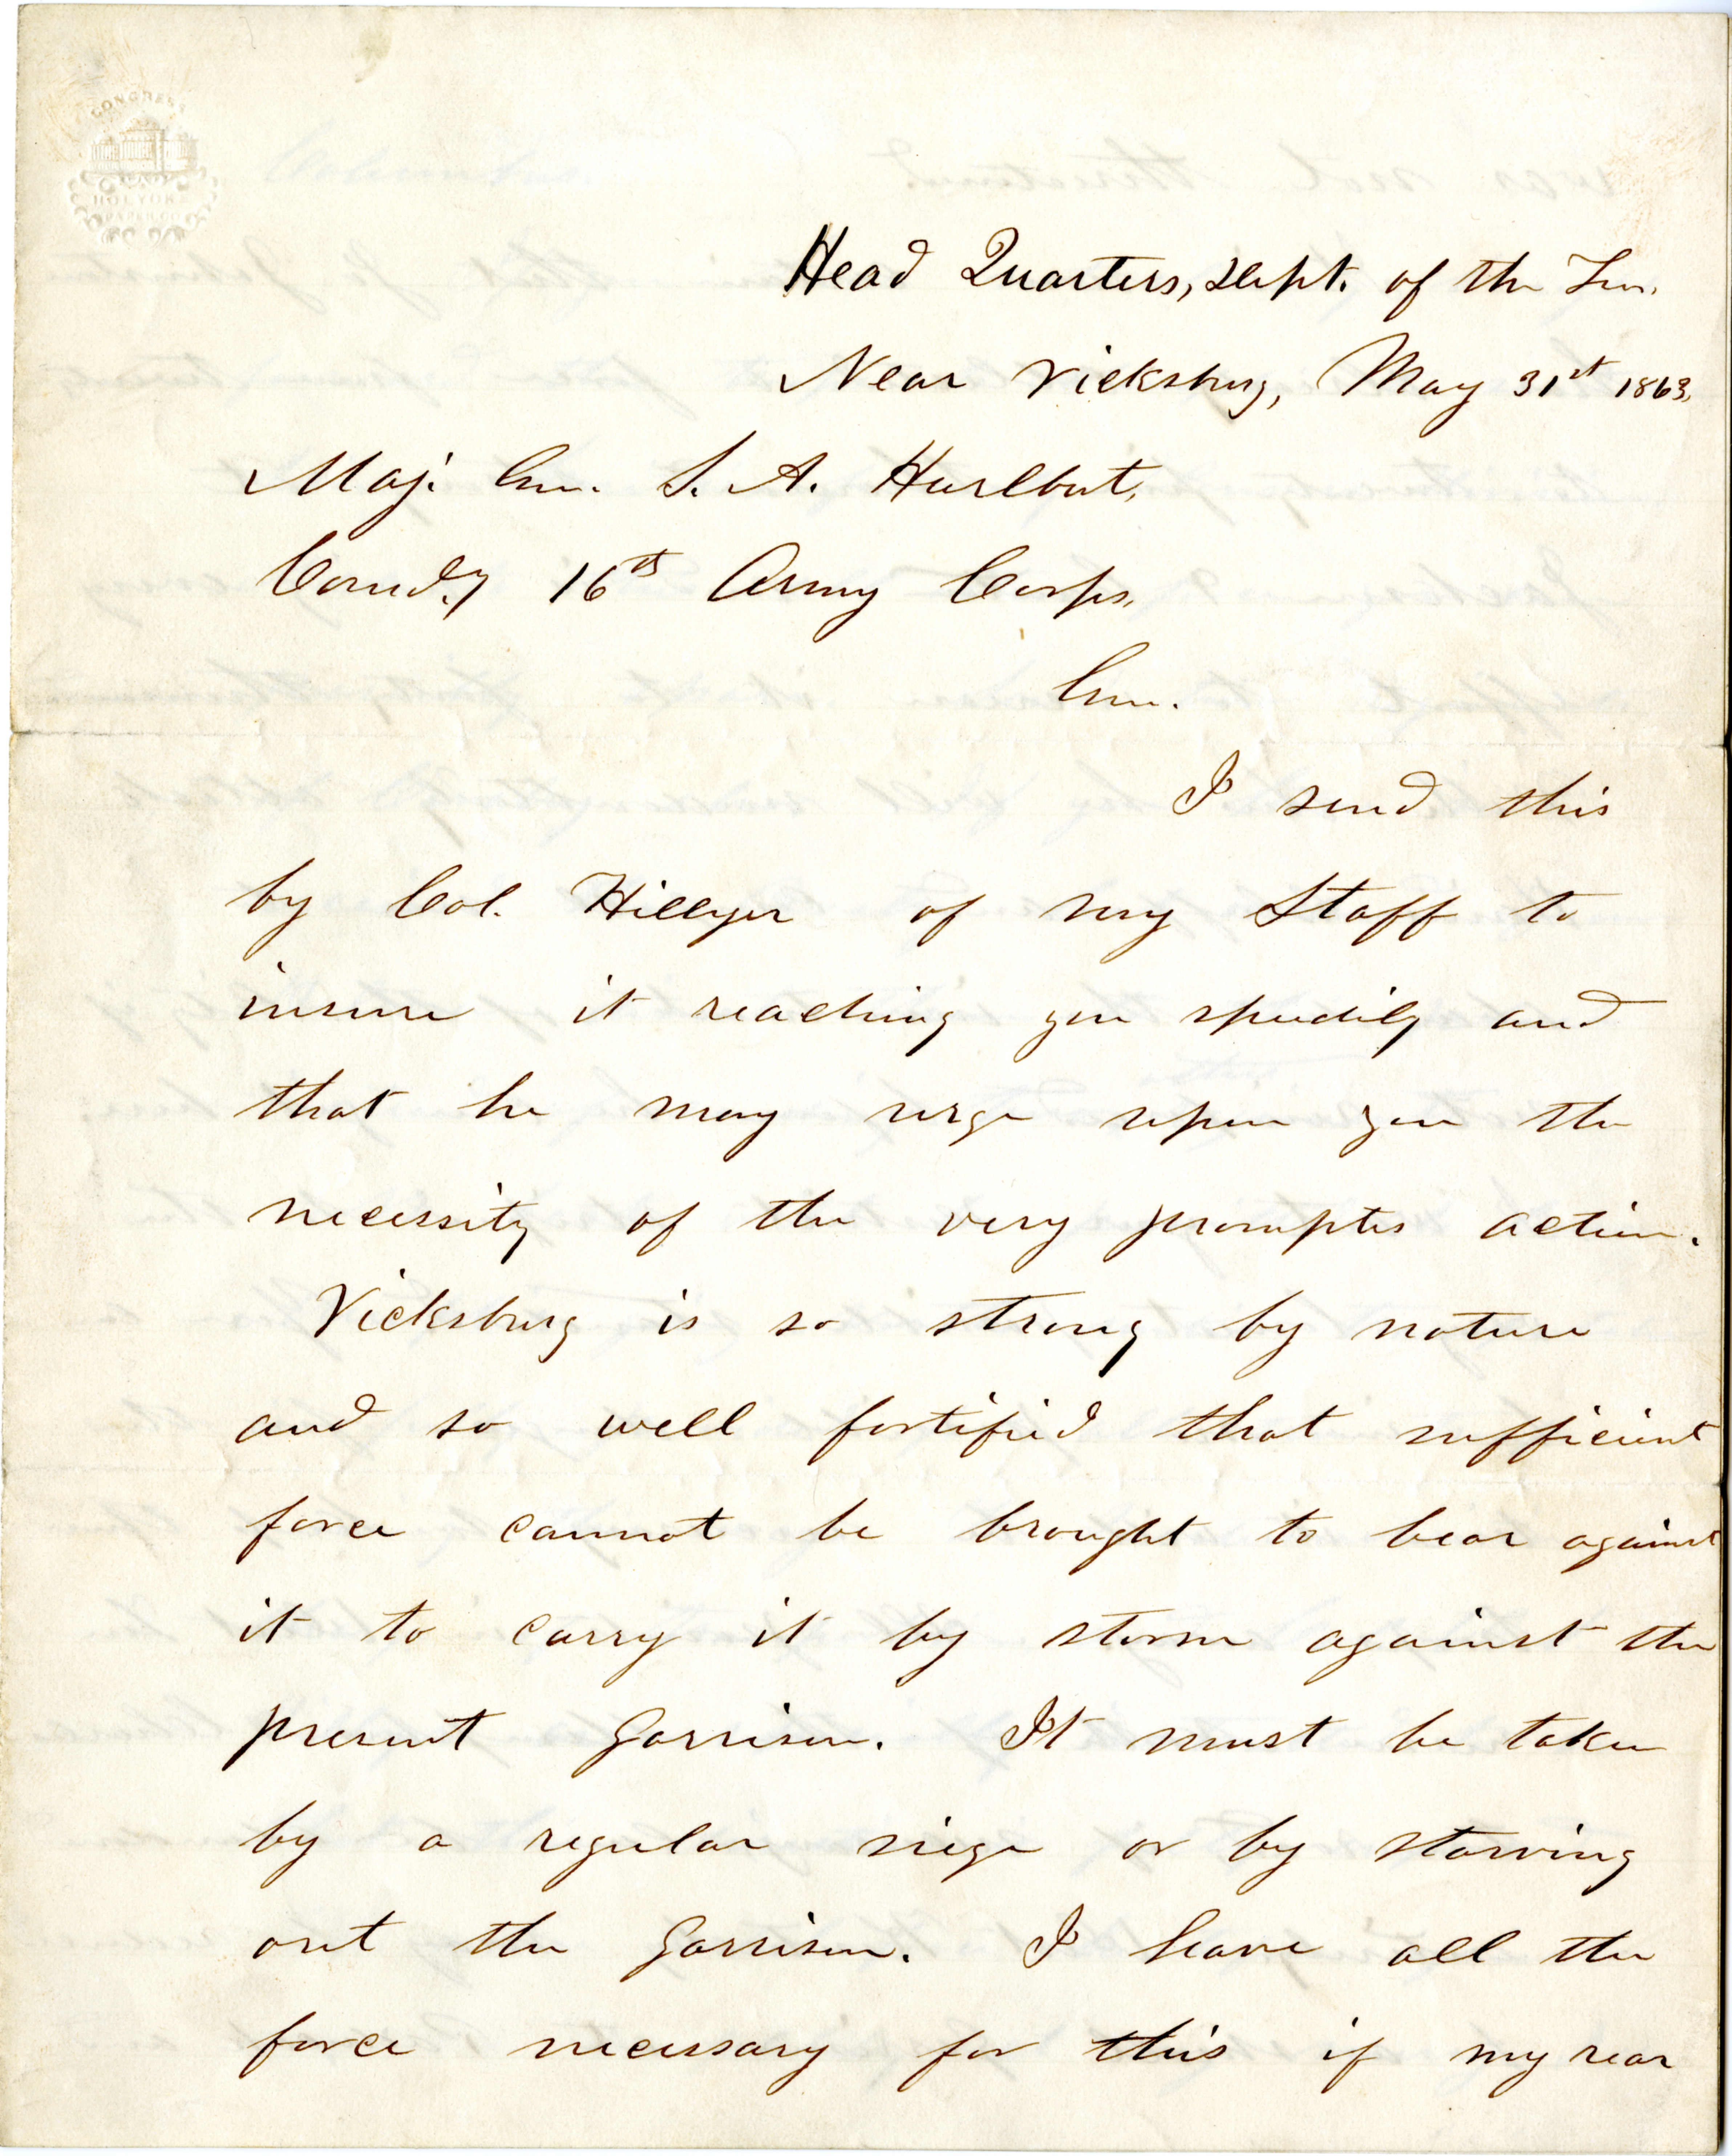 CONGRESS
HOLYOKE
PAPER CO
Head Quarters, Dept. of the Ten.
Near Vicksburg, May 31st 1863.
Maj. Gen. S. A. Hurlbut,
Comd.g 16th Army Corps,
Gen.
I send this
by Col. Hillyer of my Staff to
insure it reaching you speedily and
that he may urge upon you the
necessity of the very promptes action.
Vicksburg is so strong by nature
and so well fortified that sufficient
force cannot be brought to bear against
it to carry it by storm against the
present Garrison. It must be taken
by a regular siege or by starving
out the Garrison. I have all the
force necessary for this if my rear